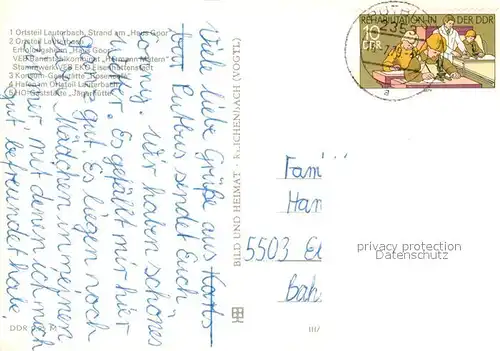 1 Ortsteil Lauterbach, Strand am „Haus Goor“
2 Ortsteil Lauterbach
Erholungsheim „Haus Goor“
VEB Bandstahlkombinat „Hermann Matern“
Stammwerk VEB EKO Eisenhüttenstadt
3 Konsum-Gaststätte „Rosencafé“
4 Hafen am Ortsteil Lauterbach
5 HO-Gaststätte „Jägerhütte“
Viele liebe Grüße aus Karls-
bad Putbus sendet Euch
Conny. Wir haben schönes
Wetter. Es gefällt mir hier
ganz gut. Es liegen noch
Mädchen in meinem
Zimmer mit denen ich mich
gut befreundet habe.
DDR M
BILD UND HEIMAT · REICHENBACH (VOGTL)
III/
REHABILITATION IN DER DDR
10
DDR
a
Fami
Han
5503 El
Bah
privacy protection
Datenschutz